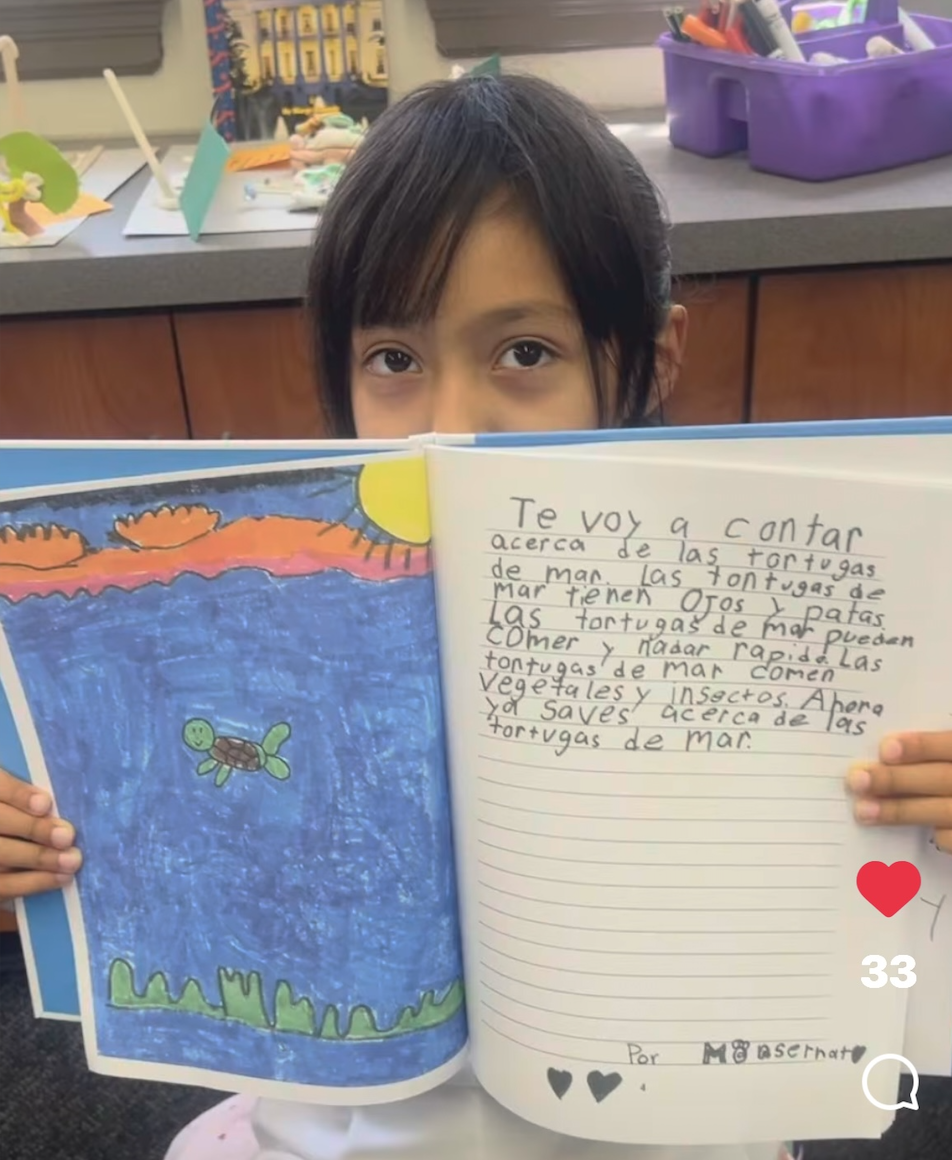 Te voy a contar
acerca de las tortugas
de mar. Las tontugas de
mar tienen Ojos y patas.
Las tortugas de mar pueden
comer y nadar rapido. Las
tontugas de mar comen
vegetales y insectos. Ahora
ya saves acerca de las
tortugas de mar.
Por Monserrat
4
33